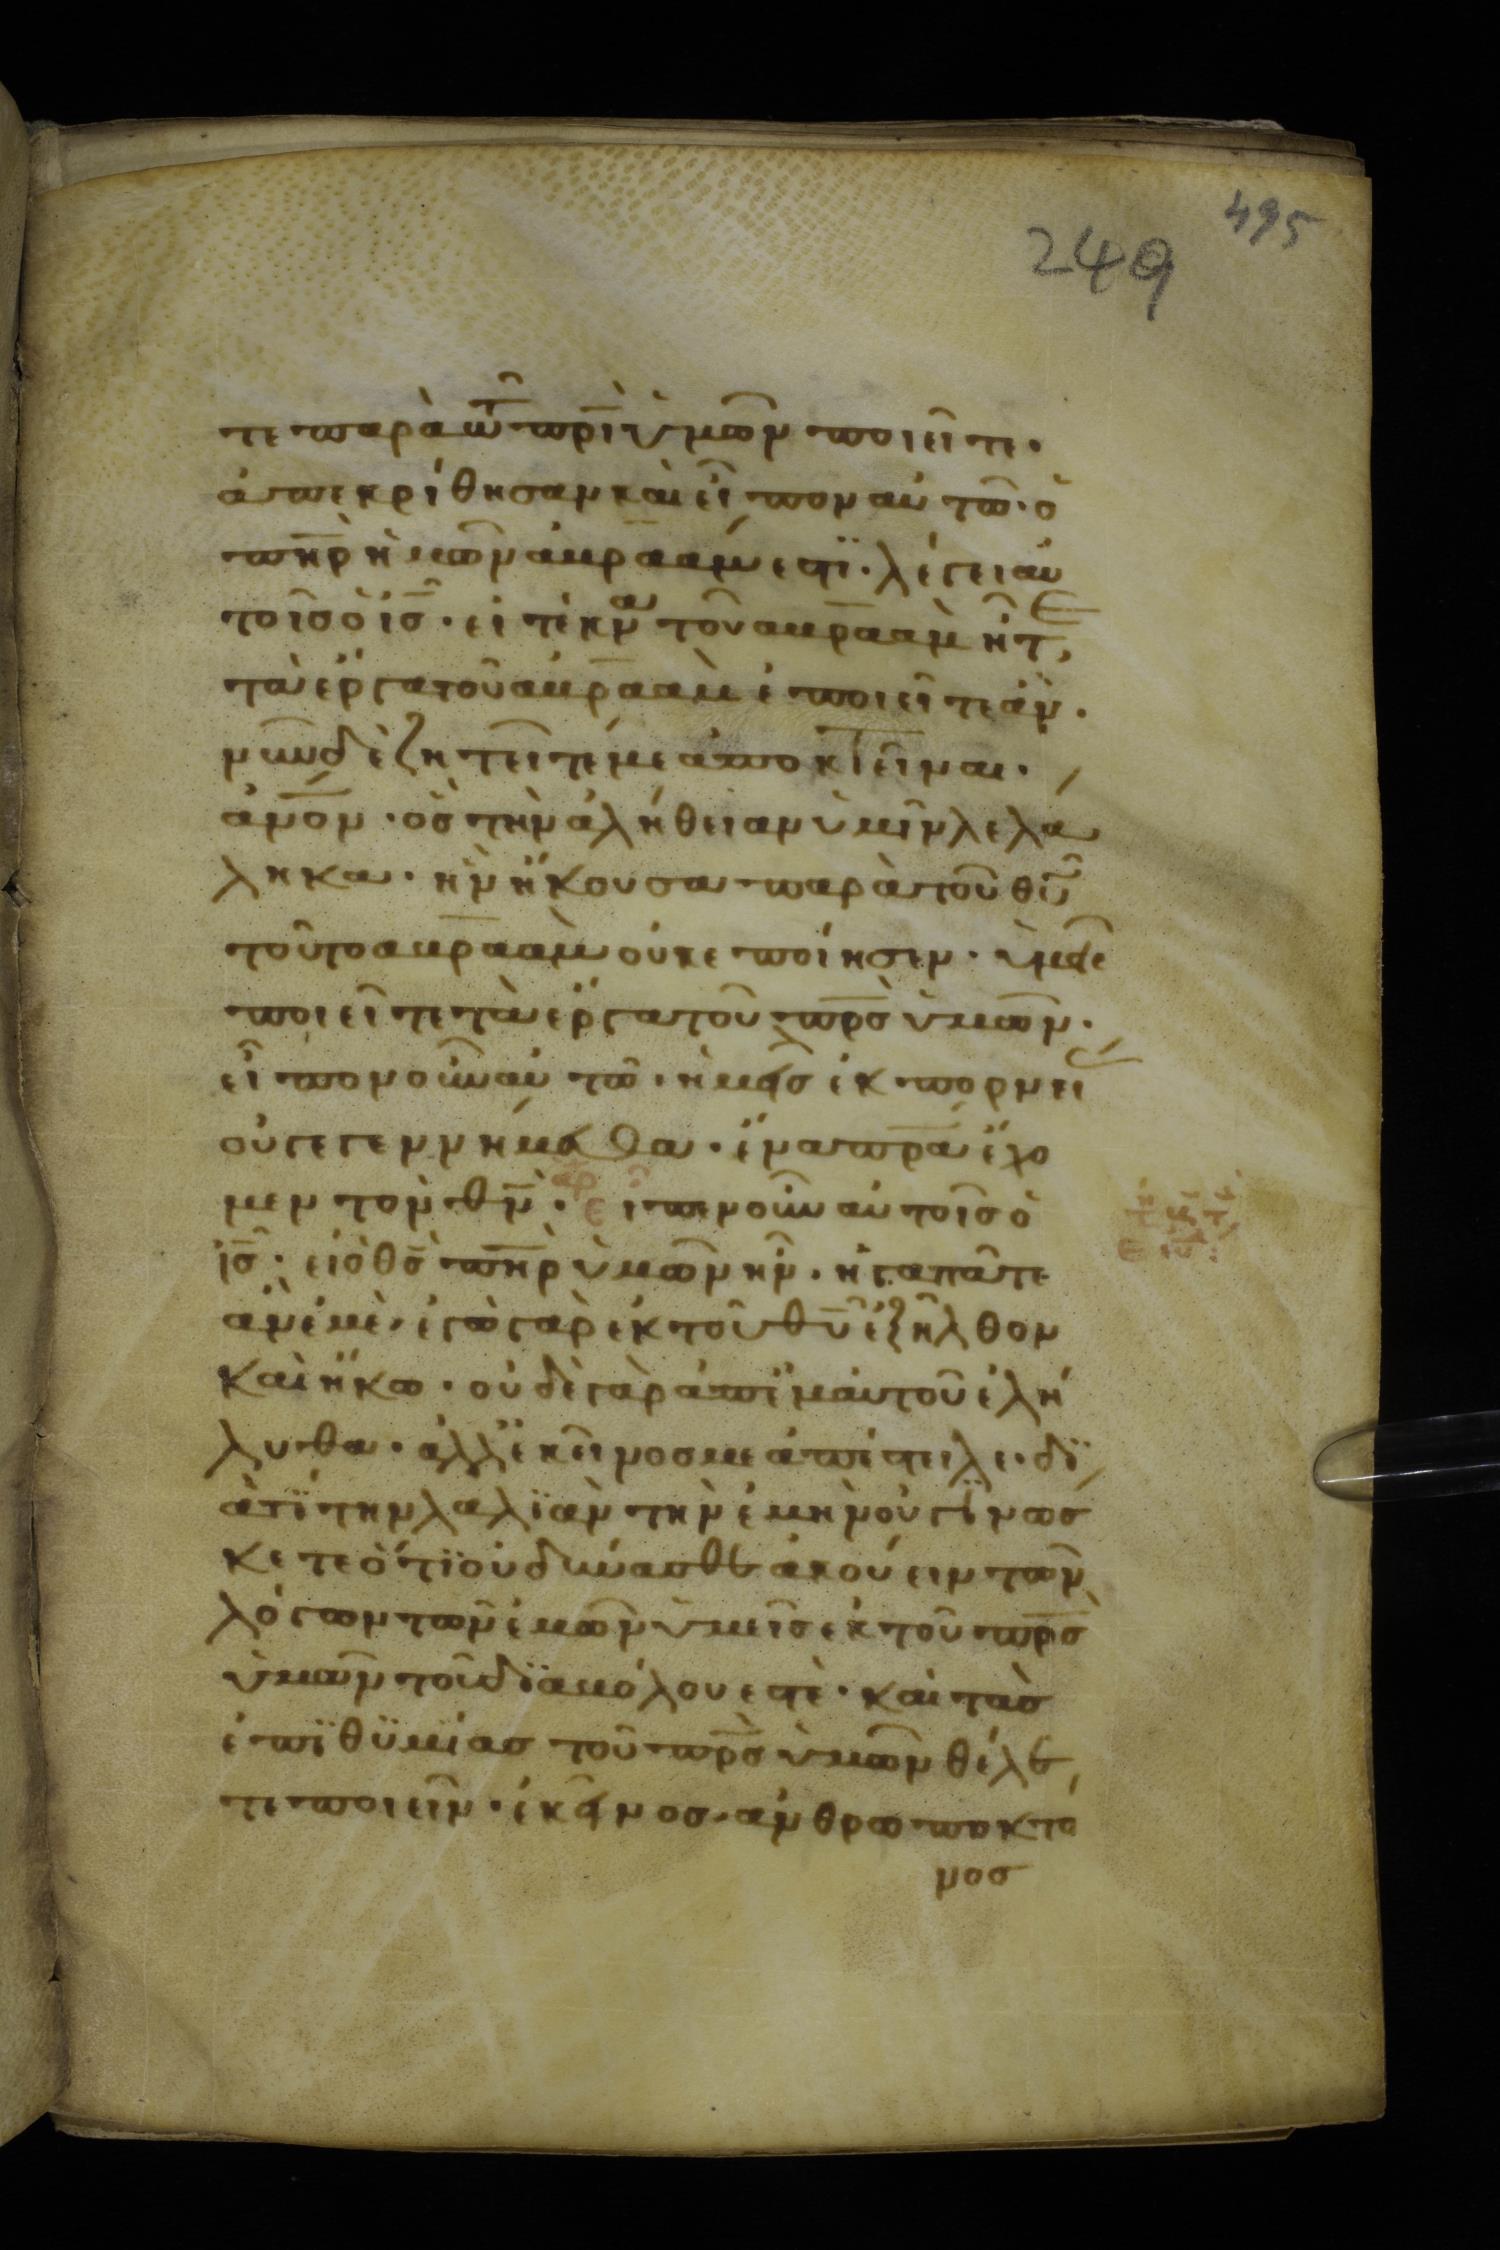 495
249
τε παρὰ τῶ π̅ρι̅ ὑμῶν ποιεῖτε·
ἀπεκρίθησαν καὶ εἶπον αὐτῶ· ὁ
π̅η̅ρ ἡμῶν ἀβρ̅αάμ ἐστϊ· λέγει αὐ
τοῖσ ὁ ι̅σ̅· εἰ τέκνα τοῦ ἀβρ̅αὰμ ἦτε
τὰ ἔργα τοῦ ἀβρ̅αὰμ ἐποιεῖτε ἄν·
νῦν δὲ ζητεῖτέ με ἀποκτεῖναι·
α̅ν̅ον· ὃσ τὴν ἀλήθειαν ὑμῖν λελά
ληκα· ἣν ἤκουσα παρὰ τοῦ θ̅υ̅
τοῦτο ἀβρ̅αὰμ οὐκ ἐποίησεν· ὑμεῖσ
ποιεῖτε τὰ ἔργα τοῦ π̅ρ̅σ ὑμῶν·
εἶπον οὖν αὐτῶ· ἡμεῖσ ἐκ πορνεί
οὐ γεγεννήμεθα· ἕνα π̅ρ̅α ἔχο
μεν τὸν θ̅ν̅· εἶπεν οὖν αὐτοῖσ ὁ
ι̅σ̅· εἰ ὁ θ̅σ̅ π̅η̅ρ ὑμῶν ἦν· ἠγαπᾶτε
ἂν ἐμὲ, ἐγὼ γὰρ ἐκ τοῦ θ̅υ̅ ἐξῆλθον
καὶ ἥκω· οὐδὲ γὰρ ἀπ ἐμαυτοῦ ἐλή
λυθα· ἀλλ ἐκεῖνοσ με ἀπέστειλε· δϊ
ατί τὴν λαλϊὰν τὴν ἐμὴν οὐ γϊνώσ
κετε ὅτϊ οὐ δύνασθε ἀκούειν τῶν
λόγων τῶν ἐμῶν ὑμεῖσ ἐκ τοῦ π̅ρ̅σ
ὑμῶν τοῦ δϊαβόλου ἐστὲ· καὶ τὰσ
ἐπϊθϋμίασ τοῦ π̅ρ̅σ ὑμῶν θέλε
τε ποιεῖν· ἐκεῖνοσ, ἀνθρωποκτό
νοσ